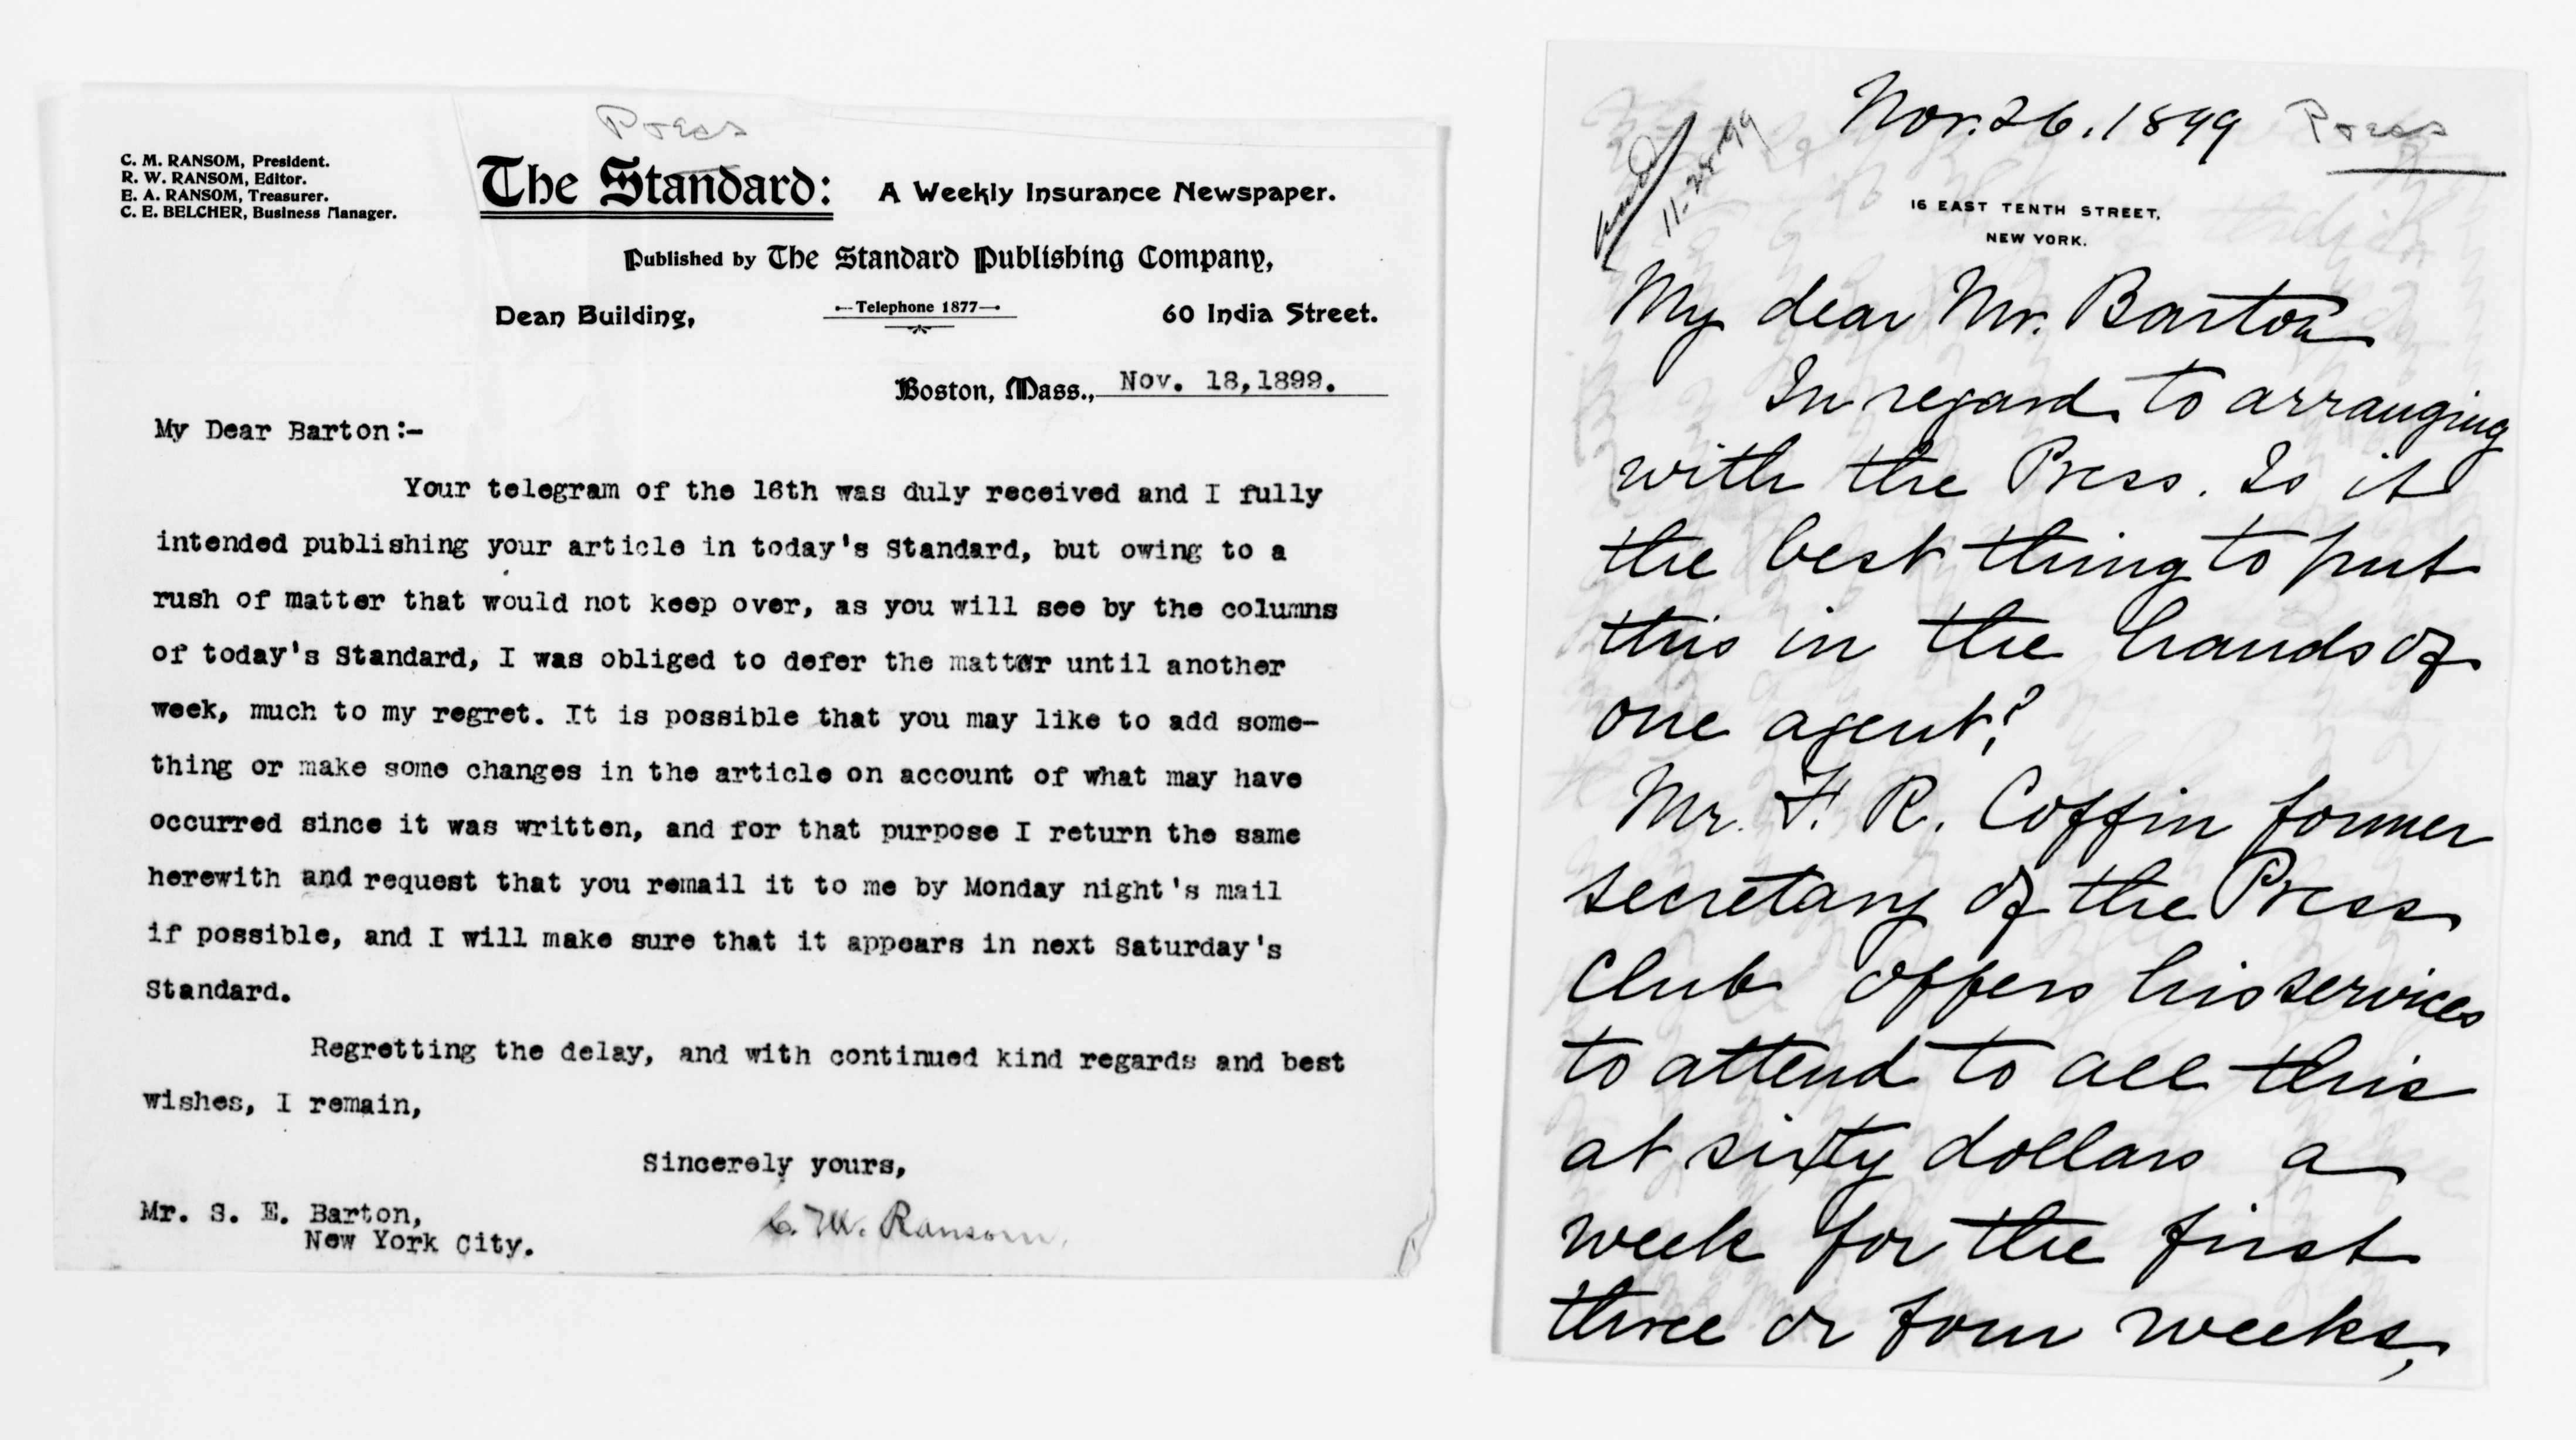 Press
C. M. RANSOM, President.
R. W. RANSOM, Editor.
E. A. RANSOM, Treasurer.
C. E. BELCHER, Business Manager.
The Standard: A Weekly Insurance Newspaper.
Published by The Standard Publishing Company,
Dean Building, —Telephone 1877— 60 India Street.
Boston, Mass., Nov. 18, 1899.
My Dear Barton:-
Your telegram of the 16th was duly received and I fully
intended publishing your article in today's Standard, but owing to a
rush of matter that would not keep over, as you will see by the columns
of today's Standard, I was obliged to defer the matter until another
week, much to my regret. It is possible that you may like to add some-
thing or make some changes in the article on account of what may have
occurred since it was written, and for that purpose I return the same
herewith and request that you remail it to me by Monday night's mail
if possible, and I will make sure that it appears in next Saturday's
Standard.
Regretting the delay, and with continued kind regards and best
wishes, I remain,
Sincerely yours,
C. M. Ransom.
Mr. S. E. Barton,
New York City.
Nov. 26. 1899 Press
11-28-99
16 EAST TENTH STREET,
NEW YORK.
My dear Mr. Barton
In regard to arranging
with the Press. Is it
the best thing to put
this in the hands of
one agent?
Mr. F. R. Coffin former
secretary of the Press
Club offers his services
to attend to all this
at sixty dollars a
week for the first
three or four weeks,